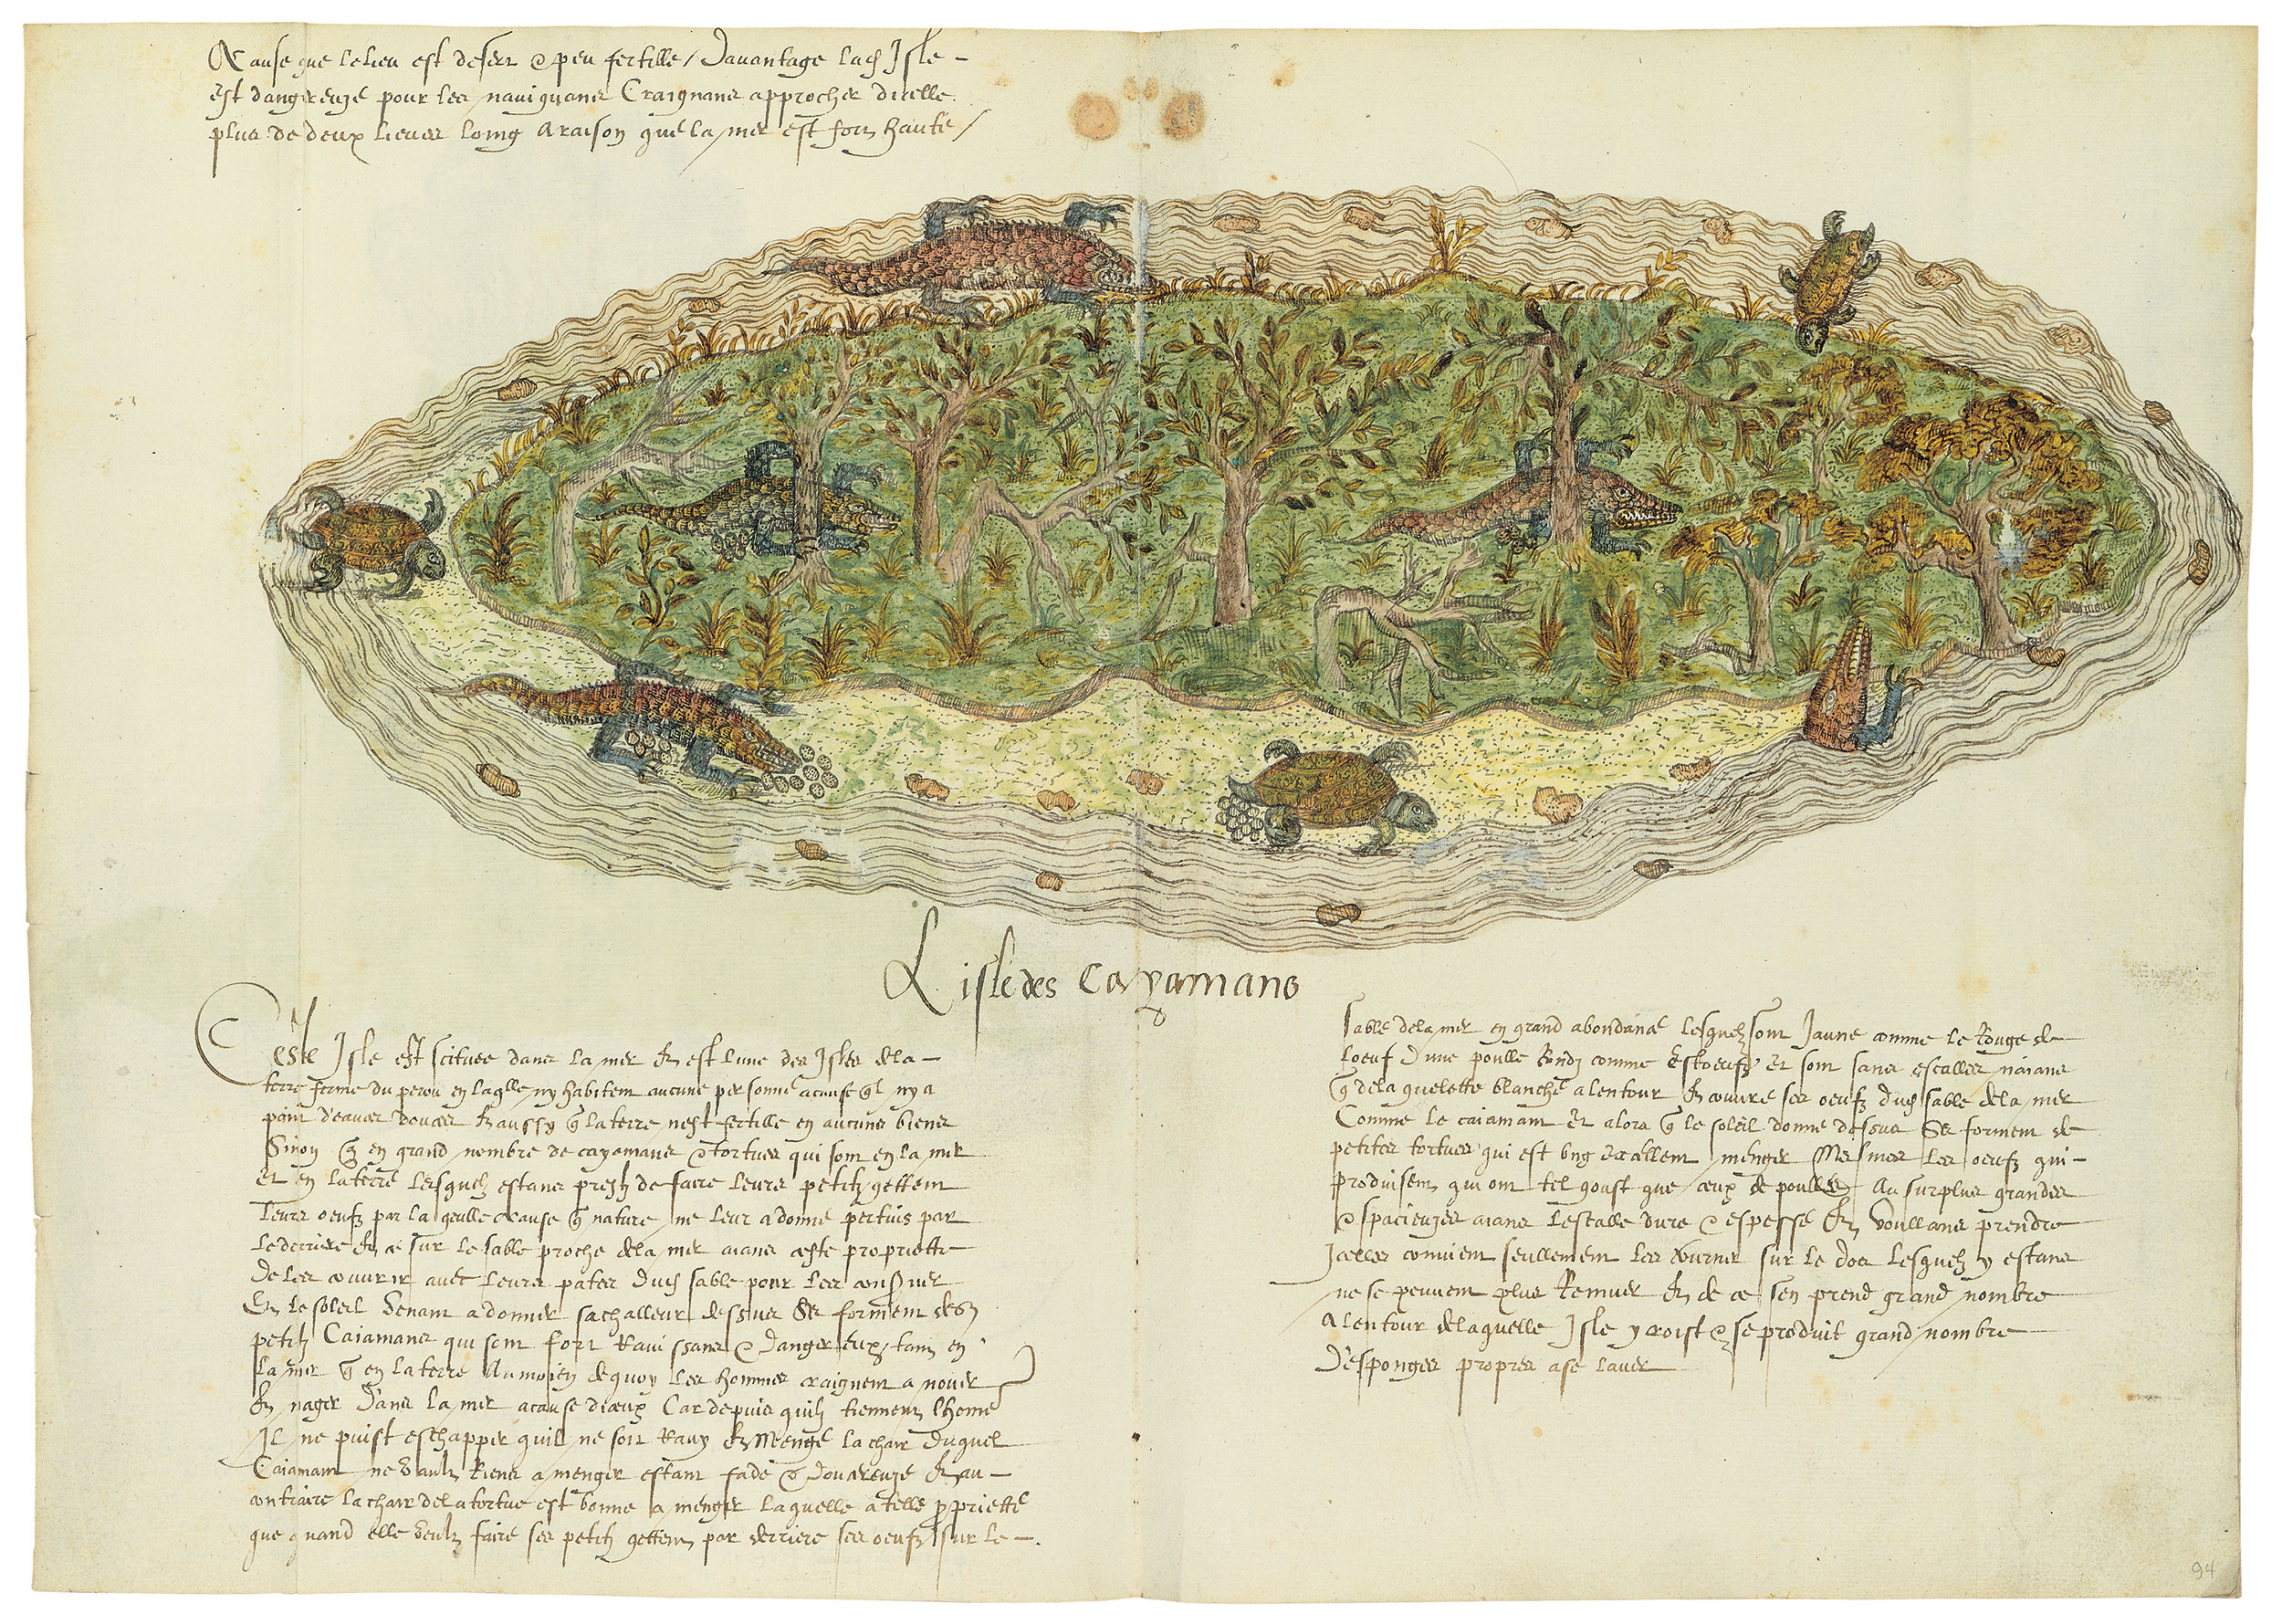 Acause que le lieu est desert & peu fertille / Davantage lad Isle
est dangereuze pour les naviguans Craignans approcher dicelle
plus de deux lieues loing a raison que la mer est fort haulte /
L isle des Cayamans
Ceste Isle est scituee dans la mer & est lune des Isles de la
terre ferme du perou en laqlle ny habitent aucune personne acause ql ny a
point deaues douces & aussy q la terre nest fertille en aucuns biens
Sinon q en grand nombre de cayamans & tortues qui sont en la mer
et en la terre lesquelz estans prestz de faire leurs petitz gettent
leurs oeufz par la geulle acause q nature ne leur a donné pertuis par
le derriere & ce sur le sable proche de la mer aians ceste propriette
de les couvrir avec leurs pates dud sable pour les conserver
Et le soleil venant a donner sa challeur dessus se forment des
petitz Caiamans qui sont fort Ravissans & dangereux, tant en
la mer q en la terre Au moien de quoy les hommes craignent a nouer
& nager dans la mer acause diceux Car depuis quilz tiennent lhome
Il ne puist eschapper quil ne soit Ravy & mengé la chair duquel
Caiamant ne vault Riens a menger estant fade & douceureuze & au
contraire la chair de la tortue est bonne a menger laquelle a telle propriette
que quand elle veult faire ses petitz gettent par derriere ses oeufz sur le
sable de la mer en grand abondance lesquelz sont Jaune comme le Rouge de
loeuf dune poulle Rondz comme Estoeufz et sont sans escalles naians
q de la quelotte blanche a lentour & couvre ses oeufz dud sable de la mer
Comme le caiamant et alors q le soleil donne dessus se forment de
petites tortues qui est ung excellent menger Mesmes les oeufz qui
produisent qui ont tel goust que ceux de poulles Au surplus grandes
& spacieuzes aians lescalle dure & espesse & voullans prendre
Icelles convient seullement les tourner sur le dos lesquelz y estans
ne se peuvent plus Remuer & de ce sen prend grand nombre
A lentour de laquelle Isle y croist & se produit grand nombre
desponges propres a se laver
94